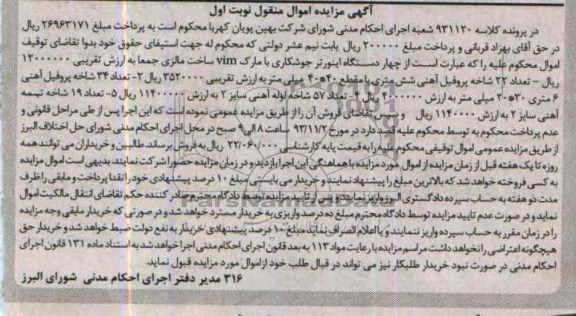 آگهی مزایده اموال منقول نوبت اول
در پرونده کلاسه ۹۳۱۱۲۰ شعبه اجرای احکام مدنی شورای شرکت بهین پویان کهربا محکوم است به پرداخت مبلغ ۲۶۹۶۳۱۷۱ ریال
در حق آقای بهزاد قربانی و پرداخت مبلغ ۲۰۰۰۰۰ ریال بابت نیم عشر دولتی که محکوم له جهت استیفای حقوق خود بدوا تقاضای توقیف
اموال محکوم علیه را که عبارت است از چهار دستگاه اینورتر جوشکاری با مارک vim ساخت مالزی جمعا به ارزش تقریبی ۱۲۰۰۰۰۰۰
ریال – تعداد ۲۲ شاخه پروفیل آهنی شش متری با مقطع ۴۰*۴۰ میلی متر به ارزش تقریبی ۳۵۲۰۰۰۰ ریال ۲- تعداد ۳۴ شاخه پروفیل آهنی
۶ متری ۳۰*۲۰ میلی متر به ارزش ریال ۴- تعداد ۵۷ شاخه لوله آهنی سایز ۲ به ارزش ۱۱۴۰۰۰۰۰ ریال ۵- تعداد ۱۹ شاخه تسمه
آهنی سایز ۲ به ارزش ۱۱۴۰۰۰۰ ریال و سپس تقاضای فروش آن را از طریق مزایده عمومی نموده است که این اجرا پس از طی مراحل قانونی و
عدم پرداخت محکوم به توسط محکوم علیه قصد دارد در مورخ ۹۳/۱۱/۲ ساعت ۸ الی ۹ صبح در محل اجرای احکام مدنی شورای حل اختلاف البرز
از طریق مزایده عمومی اموال توقیفی محکوم علیه را به قیمت پایه کارشناسی ۲۲/۰۶۰/۰۰۰ ریال به فروش برساند طالبین و خریداران می توانند همه
روزه تا یک هفته قبل از زمان مزایده از اموال مورد مزایده با هماهنگی این اجرا بازدید و در زمان مزایده حضور از شرکت نمایند بدیهی است اموال مزایده
به کسی فروخته خواهد شد که بالاترین مبلغ را پیشنهاد نمایند و خریدار می بایستی مبلغ ۱۰ درصد پیشنهادی خود را نقدا پرداخت و مابقی را ظرف
مدت دو هفته به حساب سپرده دادگستری البرز واریز نمایند و پس از تایید مزایده توسط دادگاه محترم صادر کننده حکم تقاضای انتقال مالکیت اموال
نماید و در صورت عدم تایید مزایده توسط دادگاه محترم مبلغ ده درصد واریزی به خریدار مسترد خواهد شد و در صورتی که خریدار مابقی وجه مزایده
را در زمان مقرر به حساب سپرده واریز ننمایند و یا اعلام انصراف نماید مبلغ ۱۰ درصد پیشنهادی خریدار به نفع دولت ضبط خواهد شد و خریدار حق
هیچگونه اعتراضی را نخواهد داشت مراسم مزایده با رعایت مواد ۱۱۳ به بعد قانون اجرای احکام مدنی اجرا خواهد شد به استناد ماده ۱۳۱ قانون اجرای
احکام مدنی در صورت نبود خریدار طلبکار نیز می تواند در قبال طلب خود از اموال مورد مزایده قبول نماید.
۳۱۶ مدیر دفتر اجرای احکام مدنی شورای البرز